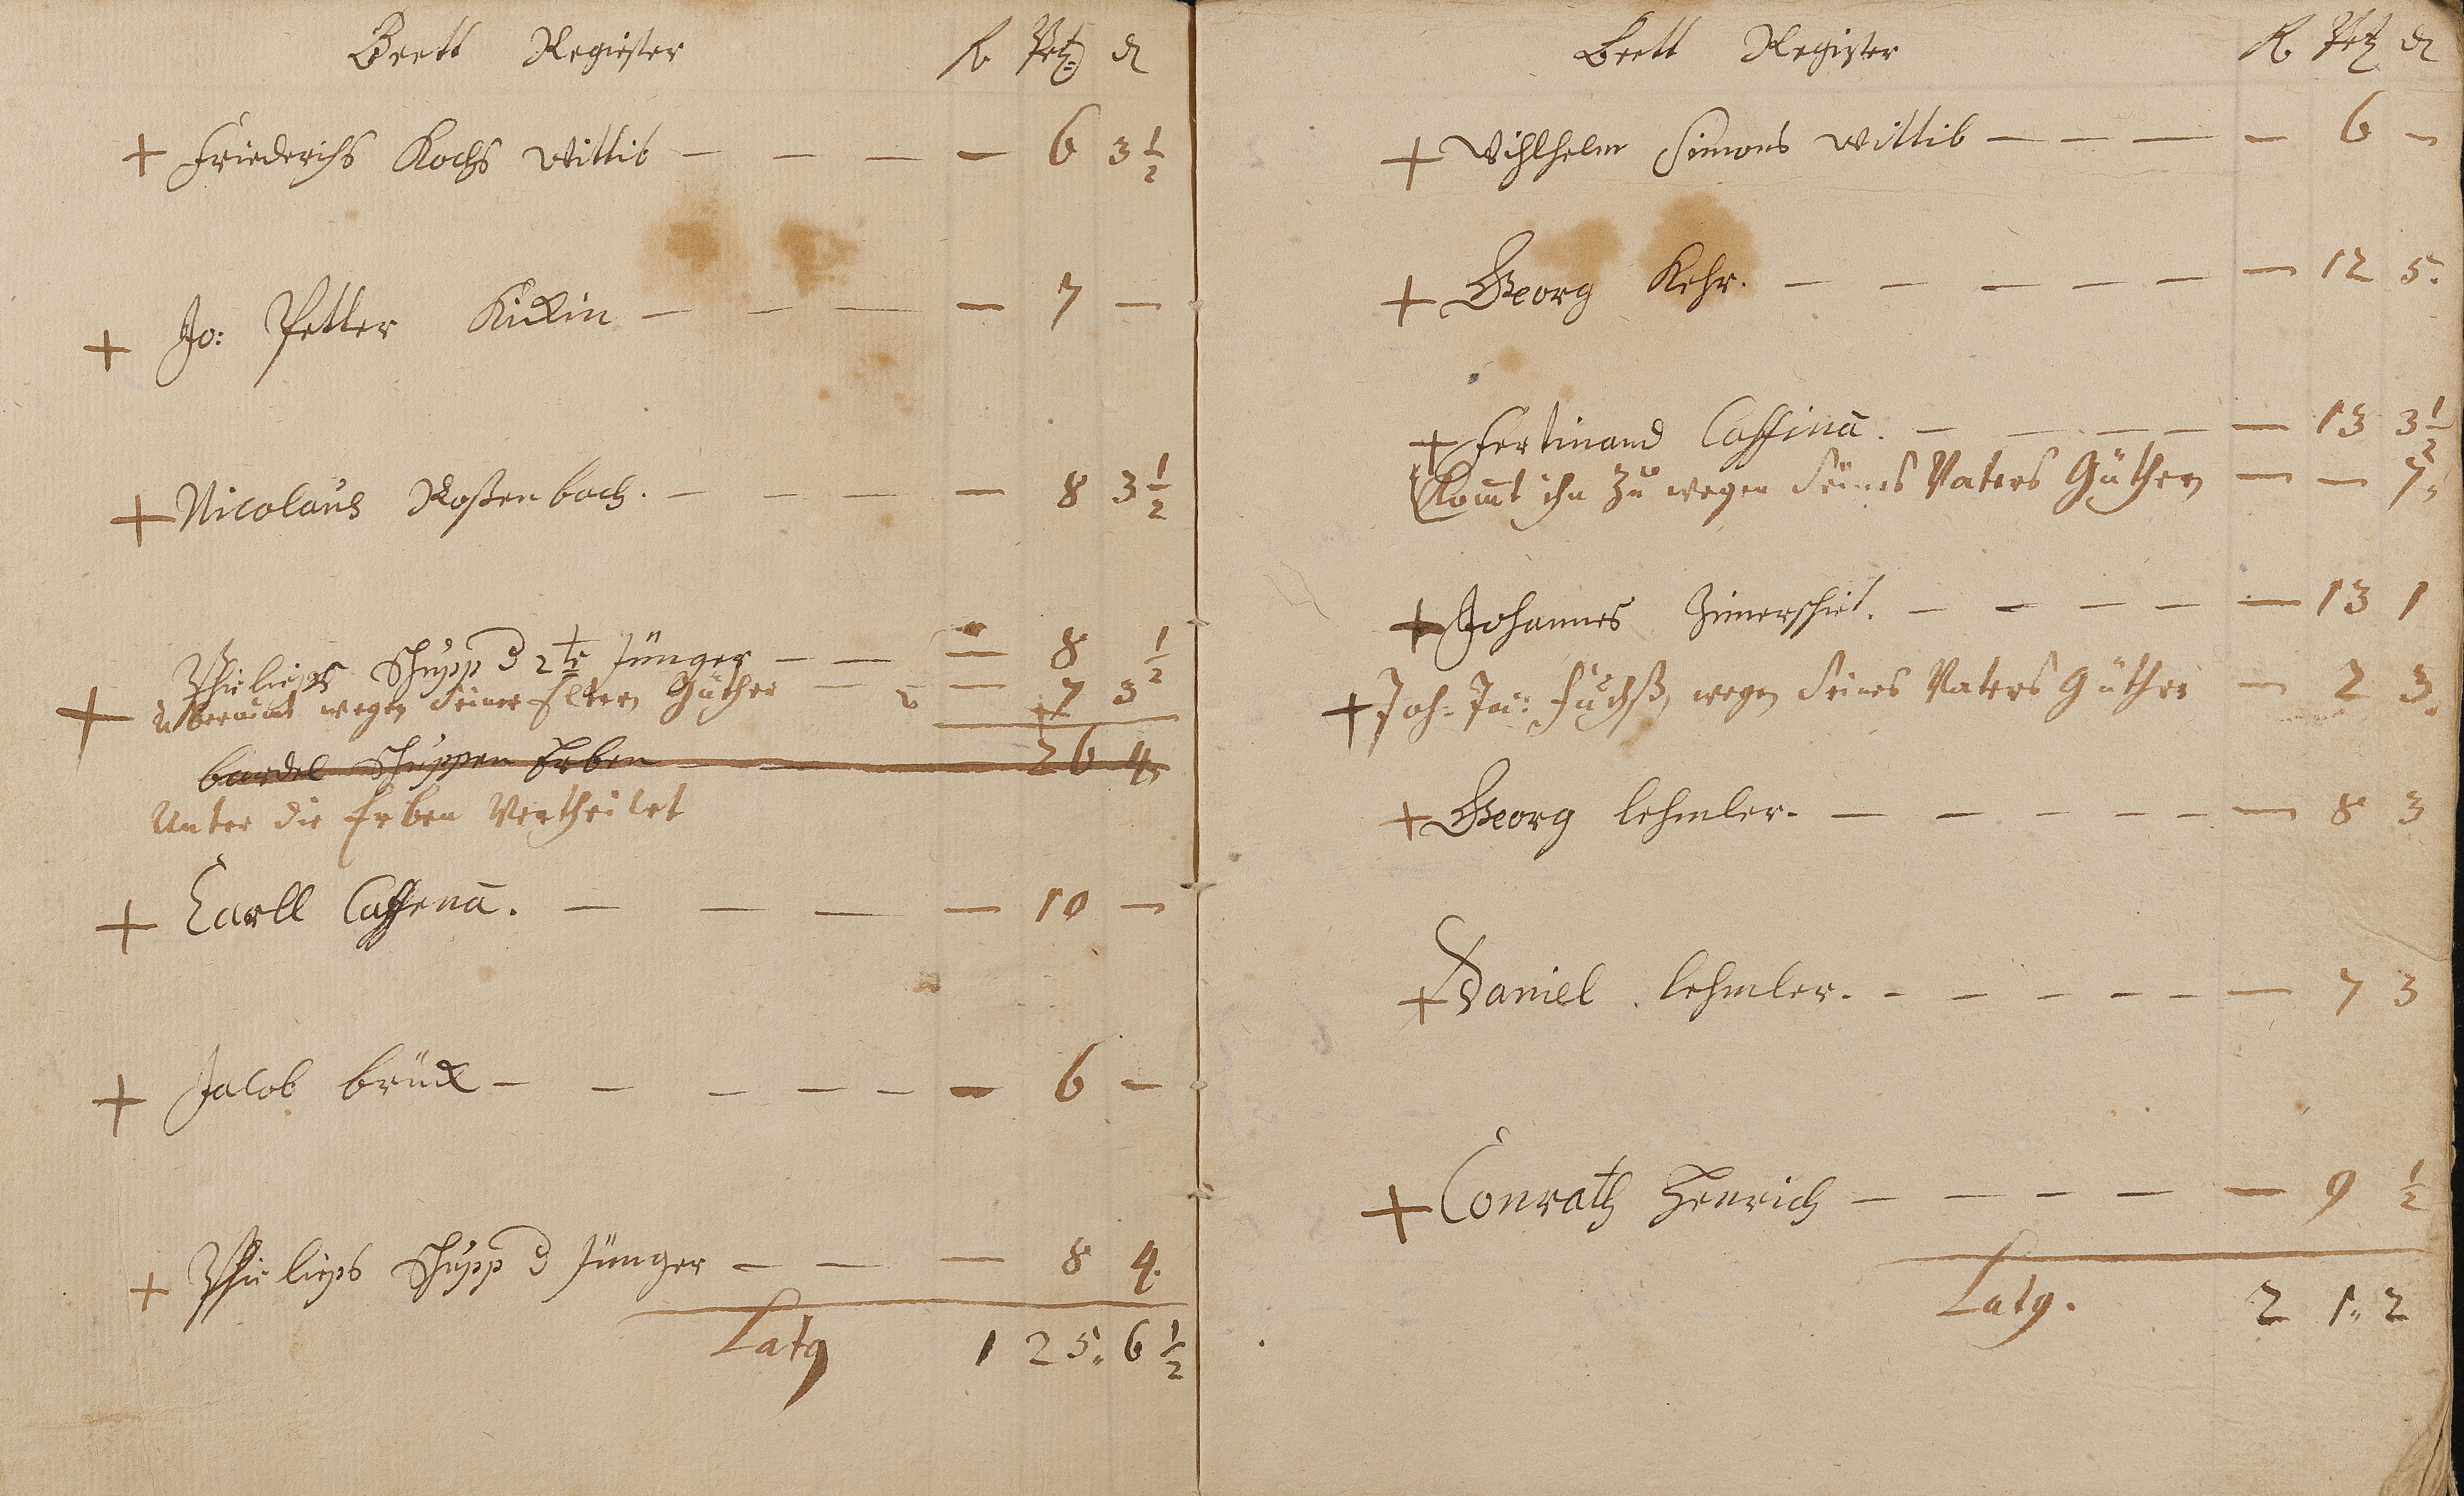 Beett Regiester fl. Btz d
+ Friederichs Kochs Wittib — — — — 6 3 1/2
+ Jo: Petter Kickin — — — — 7 —
+ Nicolaus Roßenbach. — — — — 8 3 1/2
Phielieps Schupp d 2te Jünger — — — 8 1/2
+ Übernimt wegen seiner Eltern Güther — — — 7 3
bardel Schuppen Erben — — — 26 4
Unter die Erben Vertheilet
+ Carll Caffena. — — — — 10 —
+ Jacob brück — — — — — — 6 —
+ Phielieps Schupp d Jünger — — — 8 4.
Latq 1 25. 6 1/2
Beett Register fl. Btz d
+ Wihlhelm Simons Wittib — — — — 6 —
+ Georg Kehr. — — — — — — 12 5.
+ Fertinand Caffina. — — — — — 13 3 1/2
Komt ihn zu wegen seines Vaters Güther — — 7.
+ Johannes Zimerschiet. — — — — — 13 1
+ Joh: Fuchß, wegen seines Vaters Güther — 2 3.
+ Georg lehmler. — — — — — — 8 3
+ Daniel lehmler. — — — — — — 7 3
+ Conrath Henrich — — — — — 9 1/2
Latq. 2 1. 2